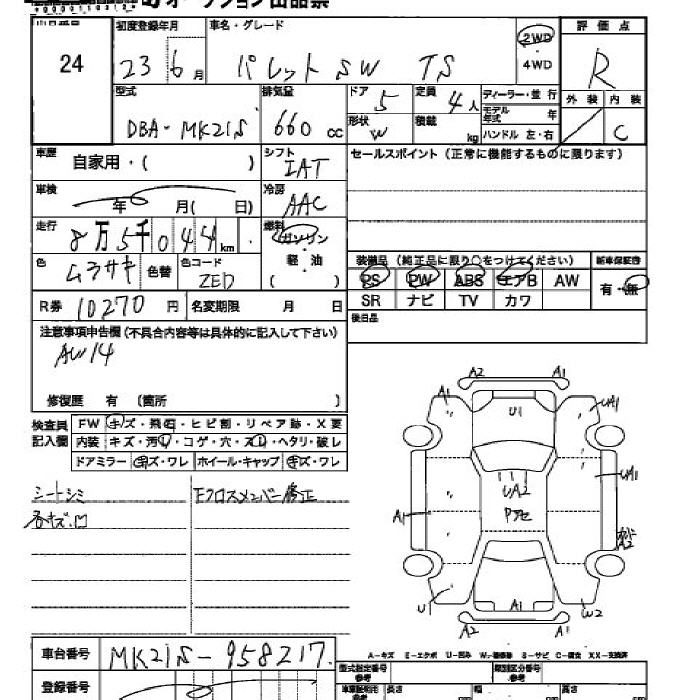 オークション出品票
出品番号 24
初度登録年月 23 6月
車名・グレード パレット SW TS
2WD・4WD
評価点 R
外装 内装 C
型式 DBA-MK21S
排気量 660 cc
ドア 5
形状 W
定員 4人
積載 kg
ディーラー・並行
モデル年式 年
ハンドル 左・右
車歴 自家用・( )
シフト IAT
セールスポイント(正常に機能するものに限ります)
車検 年 月( 日)
冷房 AAC
走行 8万5千044km
燃料 ガソリン 軽・油 ( )
色 ムラサキ 色替 色コード ZED
装備品(純正品に限り○をつけてください) 新車保証書
PS PW ABS エアB AW 有・無
SR ナビ TV カワ
R券 10270円 名変期限 月 日
後日品
注意事項申告欄(不具合内容等は具体的に記入して下さい)
AW14
修復歴 有 (箇所 )
検査員記入欄 FW キズ・飛石・ヒビ割・リペア跡・X要
内装 キズ・汚レ・コゲ・穴・スレ・ヘタリ・破レ
ドアミラー キズ・ワレ ホイール・キャップ キズ・ワレ
シートシミ Fクロスメンバー修正
各キズ.凹
A2 A1
A1 U1 UA1
UA2 UA1
Pアセ
A1 A2
U1 A1 W2
A2 A1
A-キズ E-エクボ U-凹み W-補修跡 S-サビ C-腐食 XX-交換済
車台番号 MK21S-958217
型式指定番号 類別区分番号
登録番号
長さ 幅 高さ